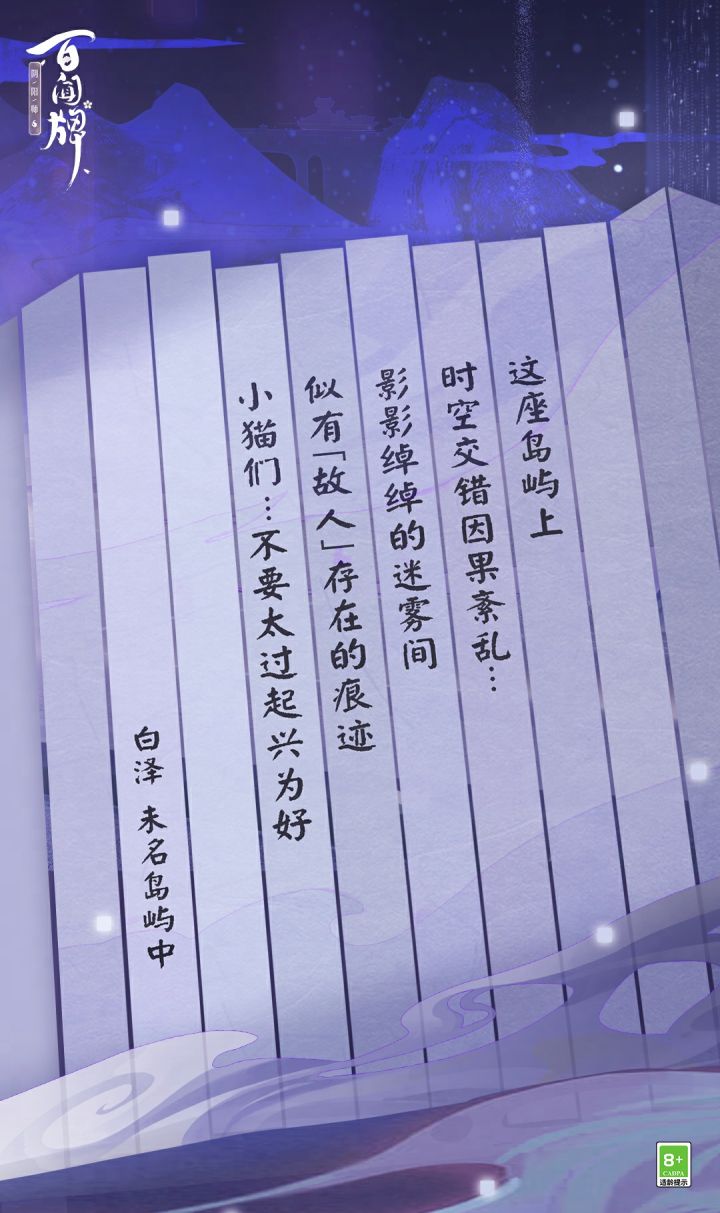 百闻牌
阴阳师
这座岛屿上
时空交错因果紊乱…
影影绰绰的迷雾间
似有「故人」存在的痕迹
小猫们…不要太过起兴为好
白泽 未名岛屿中
8+
CADPA
适龄提示